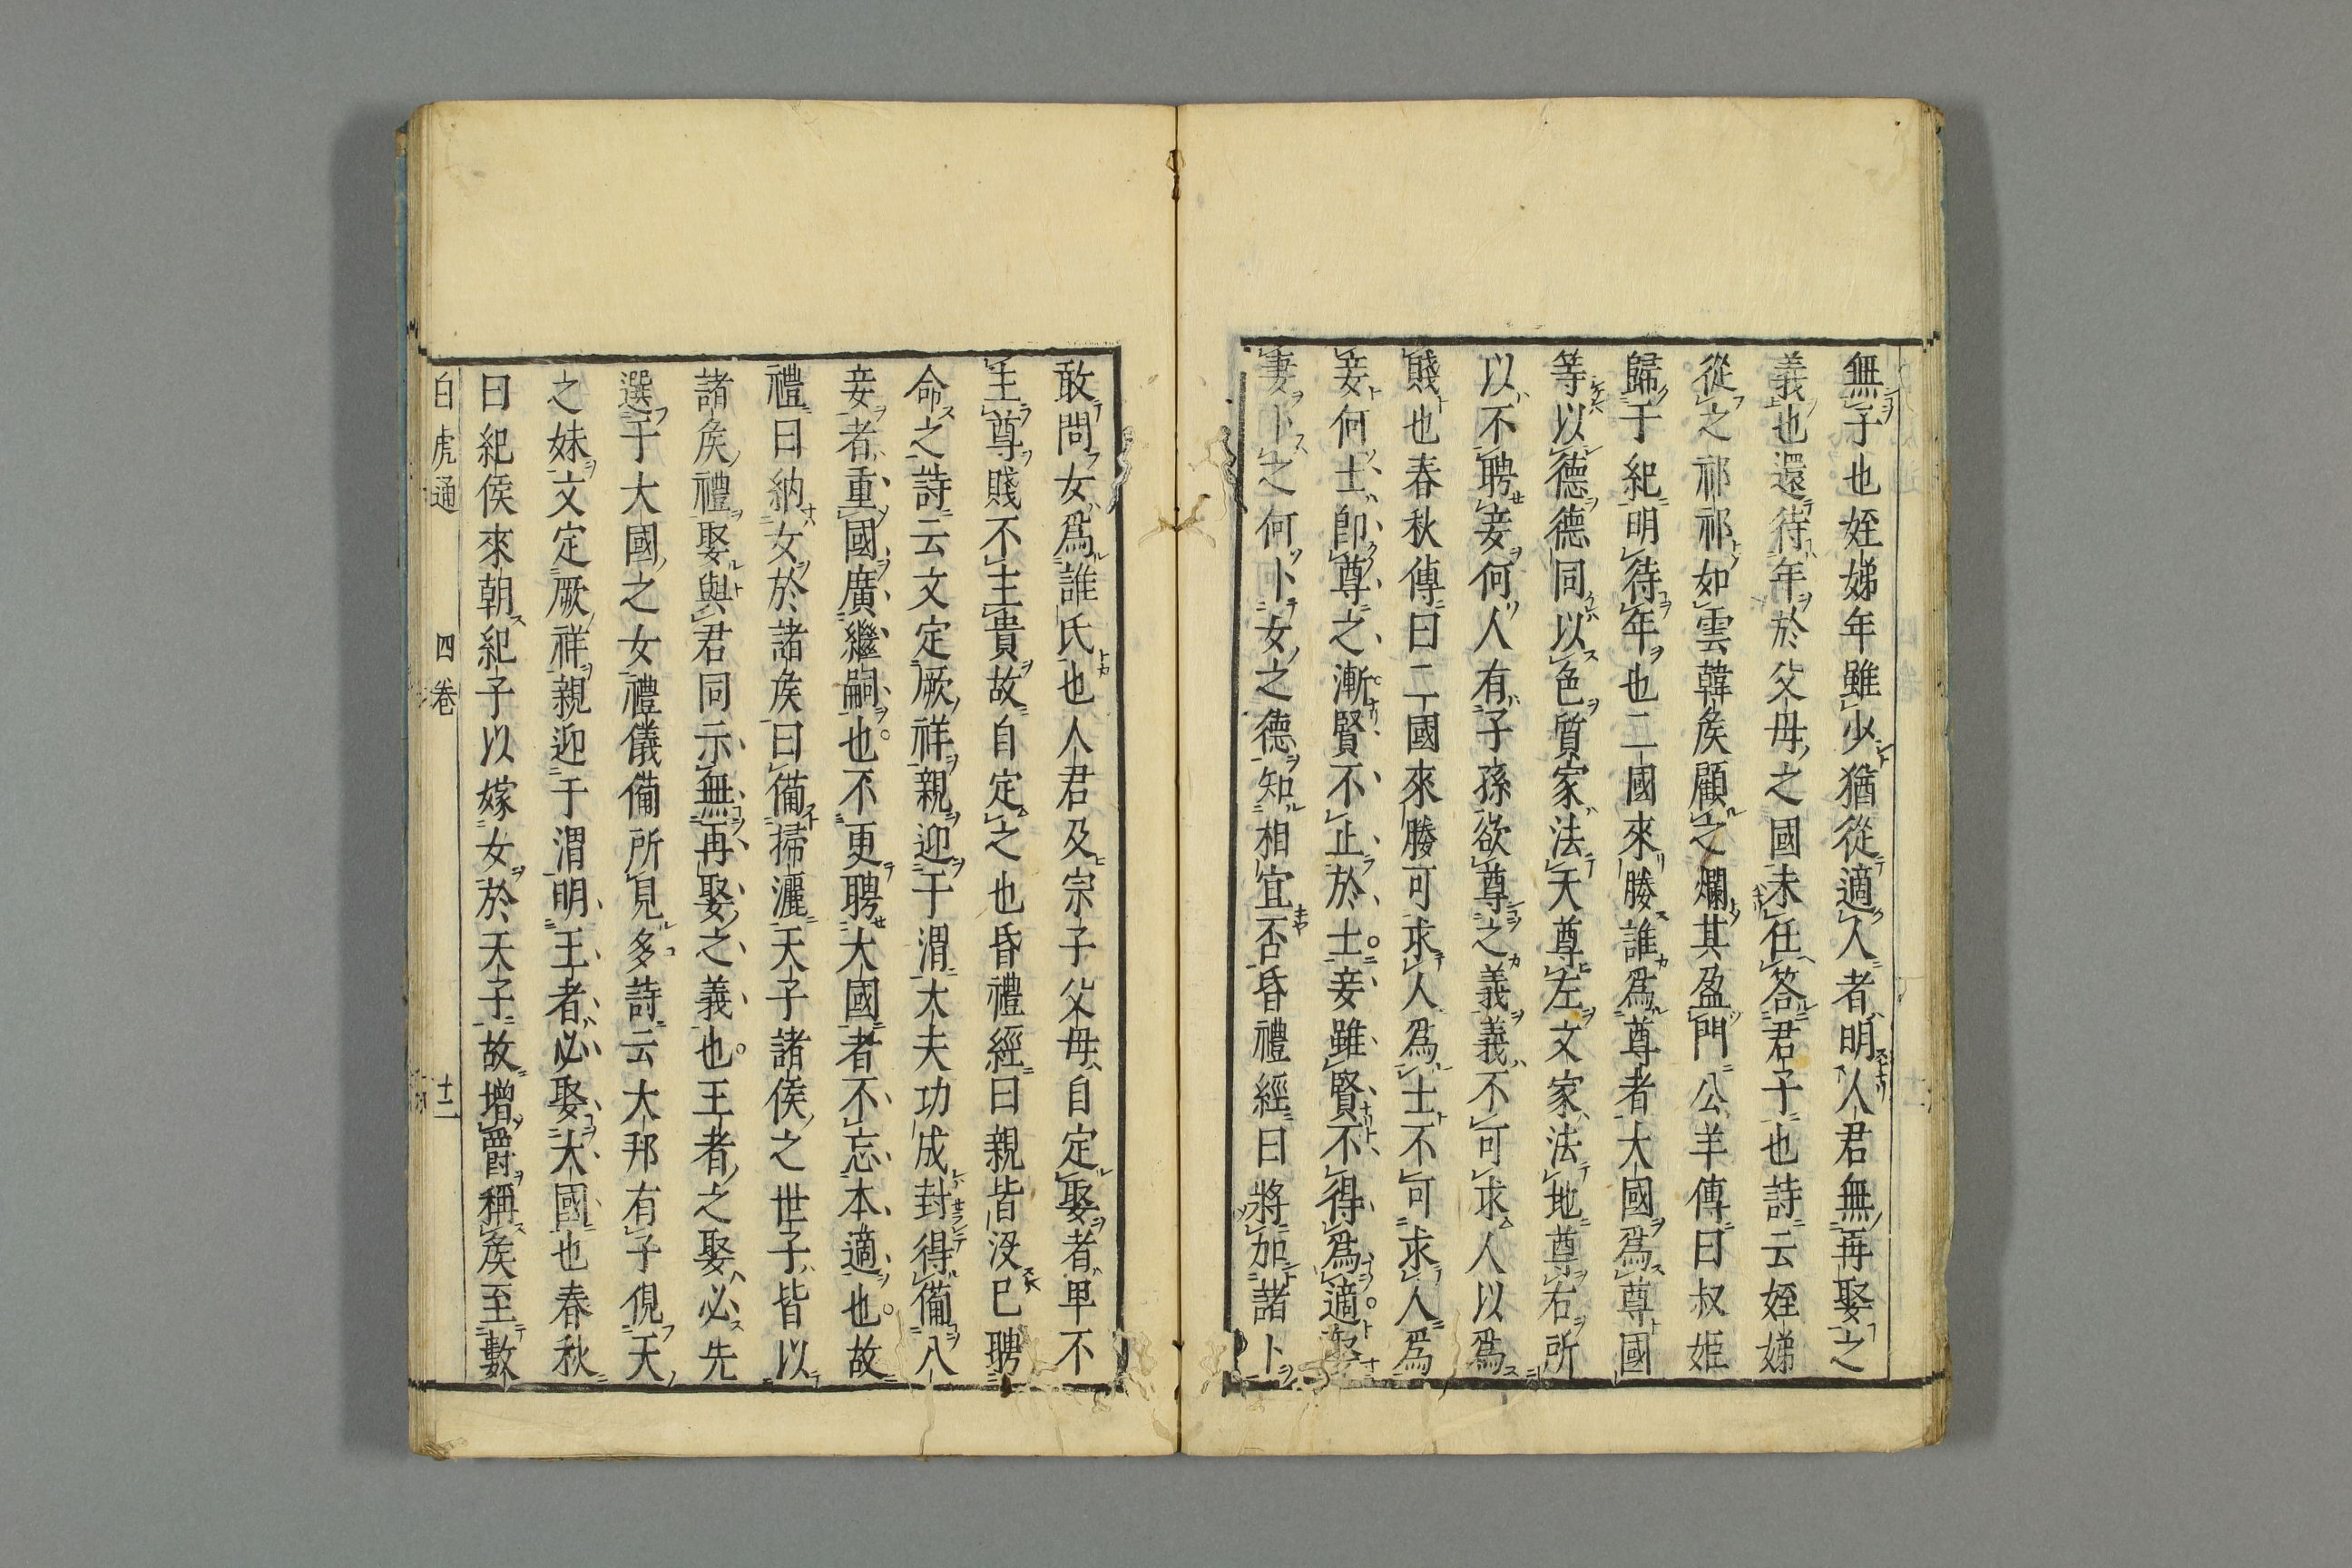 無子也姪娣年雖少猶從適人者明人君無再娶之
義也還待年於父母之國未任答君子也詩云姪娣
從之祁祁如雲韓矦顧之爛其盈門公羊傳曰叔姫
歸于紀明待年也二國來媵誰爲尊者大國爲尊國
等以德德同以色質家法天尊左文家法地尊右所
以不聘妾何人有子孫欲尊之義義不可求人以爲
賤也春秋傳曰二國來媵可求人爲士不可求人爲
妾何士即尊之漸賢不止於士妾雖賢不得爲適娶
妻卜之何卜女之德知相宜否昏禮經曰將加諸卜
敢問女爲誰氏也人君及宗子父母自定娶者卑不
主尊賤不主貴故自定之也昏禮經曰親皆没已聘
命之詩云文定厥祥親迎于渭大夫功成封得備八
妾者重國廣繼嗣也不更聘大國者不忘本適也故
禮曰納女於諸矦曰備掃灑天子諸侯之世子皆以
諸矦禮娶與君同示無再娶之義也王者之娶必先
選于大國之女禮儀備所見多詩云大邦有子俔天
之妹文定厥祥親迎于渭明王者必娶大國也春秋
曰紀侯來朝紀子以嫁女於天子故增爵稱矦至數
白虎通 四卷 十二